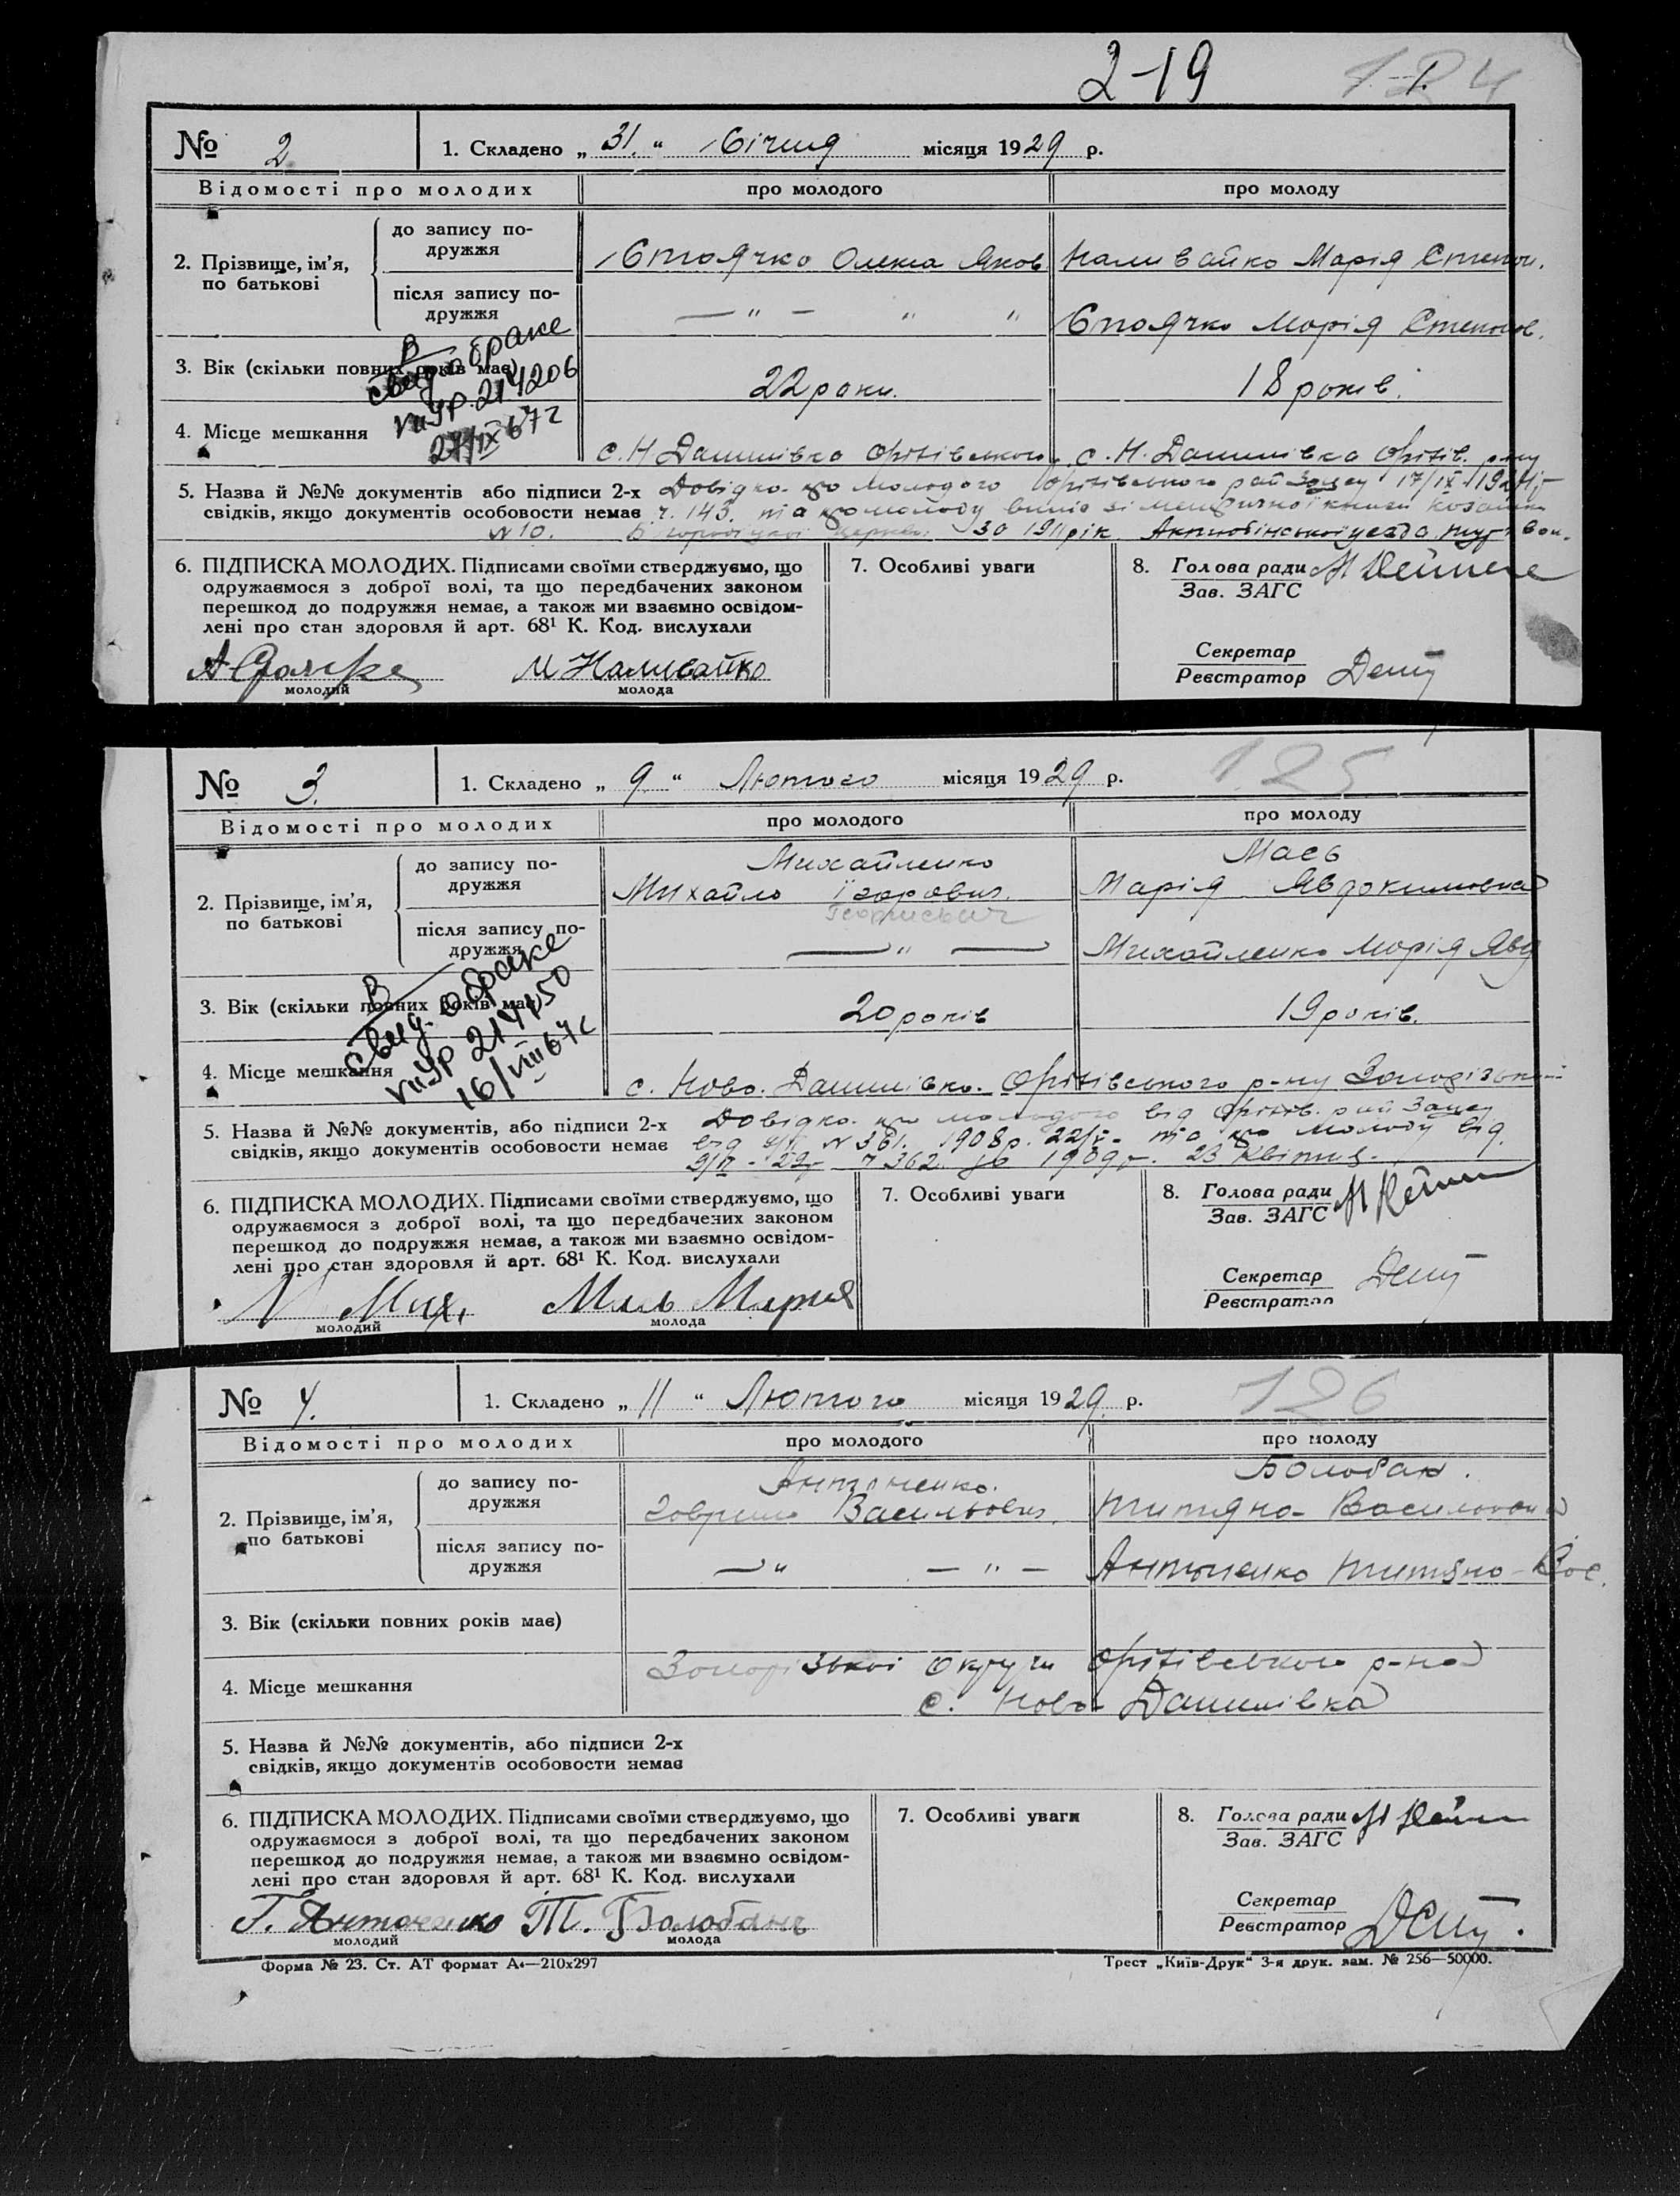 2-19
№ 2 1. Складено „ 31 “ Січня місяця 1929 р.
Відомості про молодих про молодого про молоду
2. Прізвище, ім’я, по батькові
до запису подружжя Стоячко Олекса Яков. Наливайко Марія Степан.
після запису подружжя — " — " " Стоячко Марія Степанов.
3. Вік (скільки повних років має) 22 роки. 18 років.
В
свид. о браке
VII УР. 214206
27/IX 67 г
4. Місце мешкання с. Н. Данилівка с. Н. Данилівка
5. Назва й №№ документів або підписи 2-х свідків, якщо документів особовости немає
Довідка про молодого 17/IX
ч. 143. та про молоду книги
№ 10. церкви 30 1911 рік.
6. ПІДПИСКА МОЛОДИХ. Підписами своїми стверджуємо, що
одружаємося з доброї волі, та що передбачених законом
перешкод до подружжя немає, а також ми взаємно освідом-
лені про стан здоровля й арт. 68¹ К. Код. вислухали
М Наливайко
молодий молода
7. Особливі уваги
8. Голова ради
Зав. ЗАГС
Секретар
Реєстратор
№ 3. 1. Складено „ 9 “ Лютого місяця 1929 р. 125
Відомості про молодих про молодого про молоду
2. Прізвище, ім’я, по батькові
до запису подружжя Михайленко Маль
Михайло Ігорович. Марія Явдокимовна
Георгиевич
після запису подружжя — " — Михайленко Марія Явд
3. Вік (скільки повних років має) 20 років 19 років.
В
свид. о браке
VII УР 214150
16/VIII 67 г
4. Місце мешкання с. Ново. Данилівка. р-ну
5. Назва й №№ документів, або підписи 2-х свідків, якщо документів особовости немає
Довідка про молодого від
від № 361. 1908 р. 22/V та про молоду від
362 1909 р. 23 квітня.
6. ПІДПИСКА МОЛОДИХ. Підписами своїми стверджуємо, що
одружаємося з доброї волі, та що передбачених законом
перешкод до подружжя немає, а також ми взаємно освідом-
лені про стан здоровля й арт. 68¹ К. Код. вислухали
М Мих. Маль Мария
молодий молода
7. Особливі уваги
8. Голова ради
Зав. ЗАГС
Секретар
Реєстратор
№ 4. 1. Складено „ 11 “ Лютого місяця 1929 р. 126
Відомості про молодих про молодого про молоду
2. Прізвище, ім’я, по батькові
до запису подружжя Антоненко. Болобан.
Гаврило Васильович. Титяна Василовна
після запису подружжя — " — " — Антоненко Титяна Вас.
3. Вік (скільки повних років має)
4. Місце мешкання Округи р-на
с. Ново Данилівка
5. Назва й №№ документів, або підписи 2-х
свідків, якщо документів особовости немає
6. ПІДПИСКА МОЛОДИХ. Підписами своїми стверджуємо, що
одружаємося з доброї волі, та що передбачених законом
перешкод до подружжя немає, а також ми взаємно освідом-
лені про стан здоровля й арт. 68¹ К. Код. вислухали
Г. Антоненко Т. Болобанъ
молодий молода
7. Особливі уваги
8. Голова ради
Зав. ЗАГС
Секретар
Реєстратор
Форма № 23. Ст. АТ формат А₄—210х297 Трест „Київ-Друк“ 3-я друк. зам. № 256—50000.